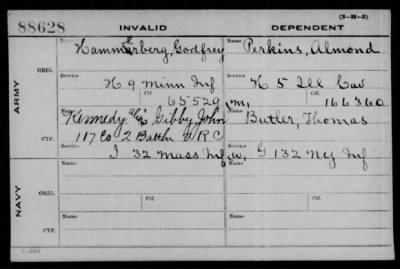 (3-H-3)
88628 INVALID DEPENDENT
Name Hammerberg, Godfrey Name Perkins, Almond
ARMY ORIG. Service H 9 Minn Inf Service K 5 Ill Cav
Ctf. 65529 M, Ctf. 166360
CTF. Kennedy alias Gibby John Butler, Thomas
117 Co 2 Battn V R C
I 32 Mass Inf W, G 132 Ny Inf
NAVY ORIG. Name Name
Service Ctf. Service Ctf.
CTF. Name Name